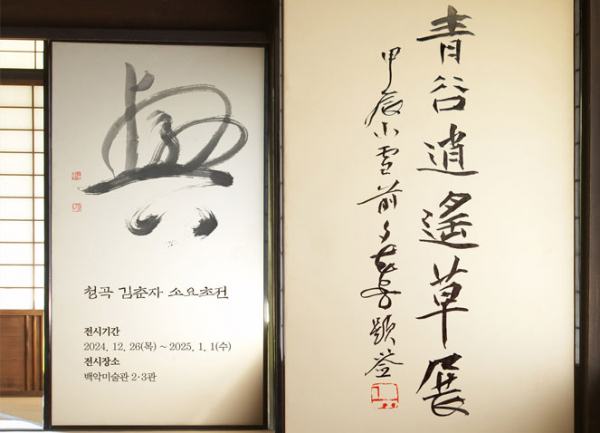 청곡 김춘자 소요초전
전시기간
2024. 12. 26(목) ~ 2025. 1. 1(수)
전시장소
백악미술관 2·3관
青谷逍遙草展
甲辰小雪前夕 題